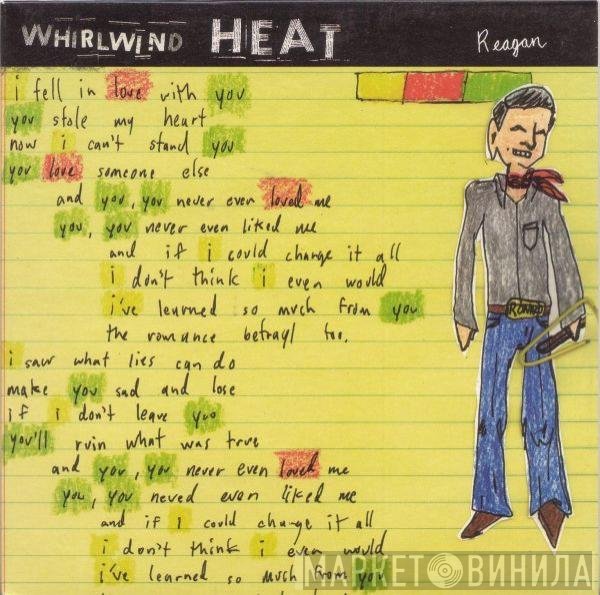 WHIRLWIND HEAT
Reagan
i fell in love with you
you stole my heart
now i can't stand you
you love someone else
and you, you never even loved me
you, you never even liked me
and if i could change it all
i don't think i even would
i've learned so much from you
the romance betrayl too.
i saw what lies can do
make you sad and lose
if i don't leave you
you'll ruin what was true
and you, you never even loved me
you, you neved even liked me
and if I could change it all
i don't think i even would
i've learned so much from you
RONALD
МАРКЕТ ВИНИЛА